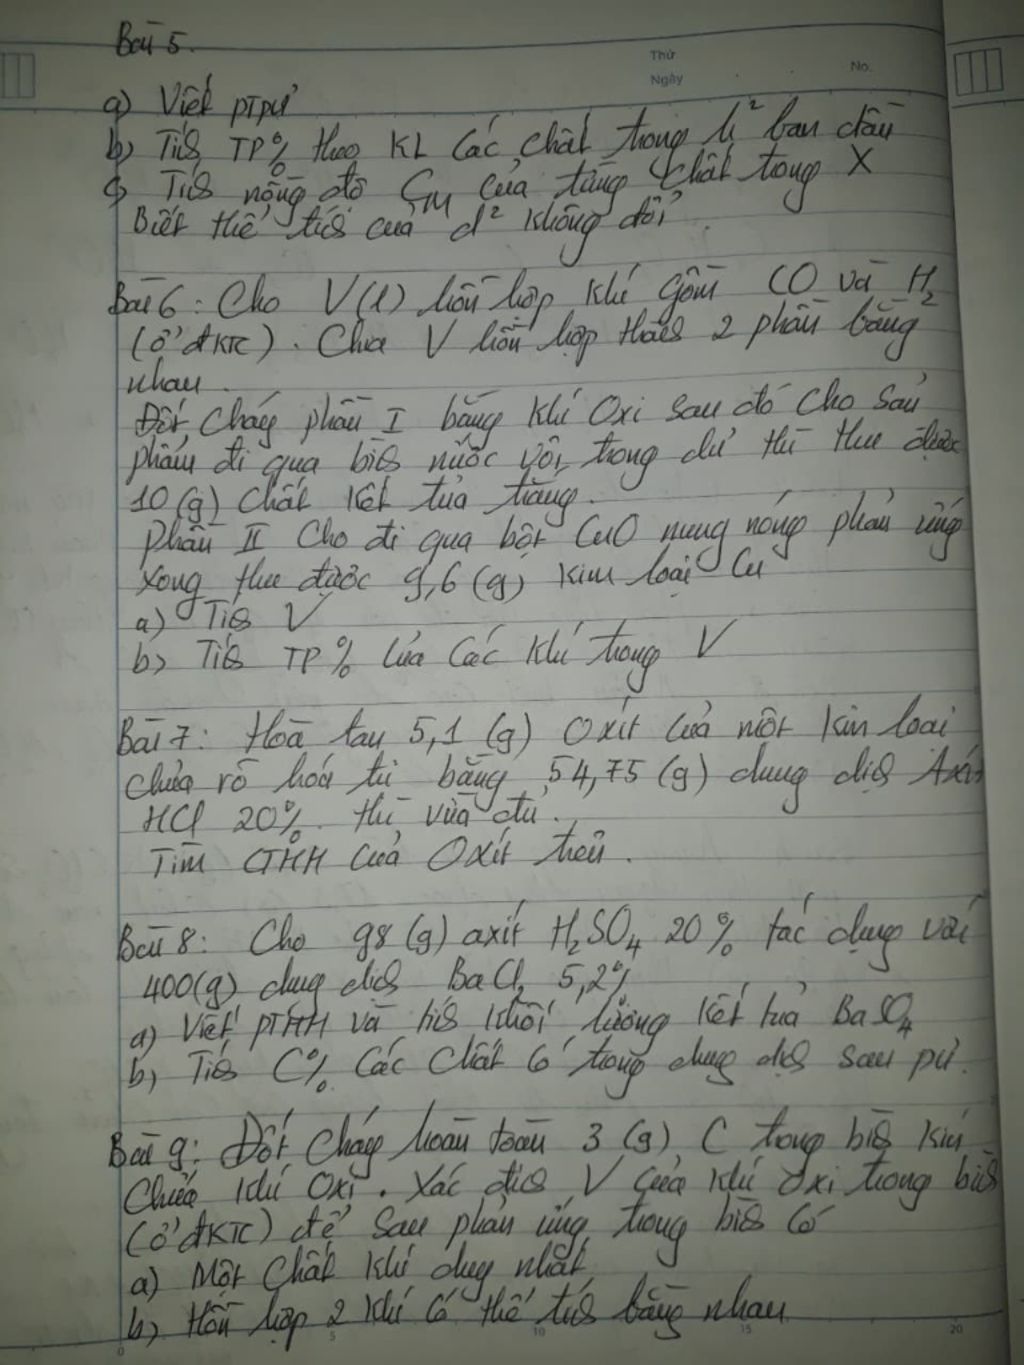 Bài 5.
Thứ
Ngày
No.
a) Viết ptpư
b) Tính TP% theo KL các chất trong h² ban đầu
c) Tính nồng độ CM của từng chất trong X
Biết thể tích của d² không đổi.
Bài 6: Cho V(l) hỗn hợp khí gồm CO và H2
(ở đktc). Chia V hỗn hợp thành 2 phần bằng
nhau.
Đốt cháy phần I bằng khí Oxi sau đó cho sản
phẩm đi qua bình nước vôi trong dư thì thu được
10(g) chất kết tủa trắng.
phần II cho đi qua bột CuO nung nóng phản ứng
xong thu được 9,6(g) kim loại Cu
a) Tính V
b) Tính TP% của các khí trong V
Bài 7: Hoà tan 5,1 (g) Oxit của một kim loại
chưa rõ hoá trị bằng 54,75 (g) dung dịch Axít
HCl 20% thì vừa đủ.
Tìm CTHH của Oxít trên.
Bài 8: Cho 98 (g) axít H2SO4 20% tác dụng với
400(g) dung dịch BaCl2 5,2%
a) Viết ptHH và tính khối lượng kết tủa BaSO4
b) Tính C% các chất có trong dung dịch sau pư.
Bài 9: Đốt cháy hoàn toàn 3 (g) C trong bình kín
chứa khí Oxi. Xác định V của khí Oxi trong bình
(ở đktc) để sau phản ứng trong bình có
a) Một chất khí duy nhất
b) Hỗn hợp 2 khí có thể tích bằng nhau
0 5 10 15 20